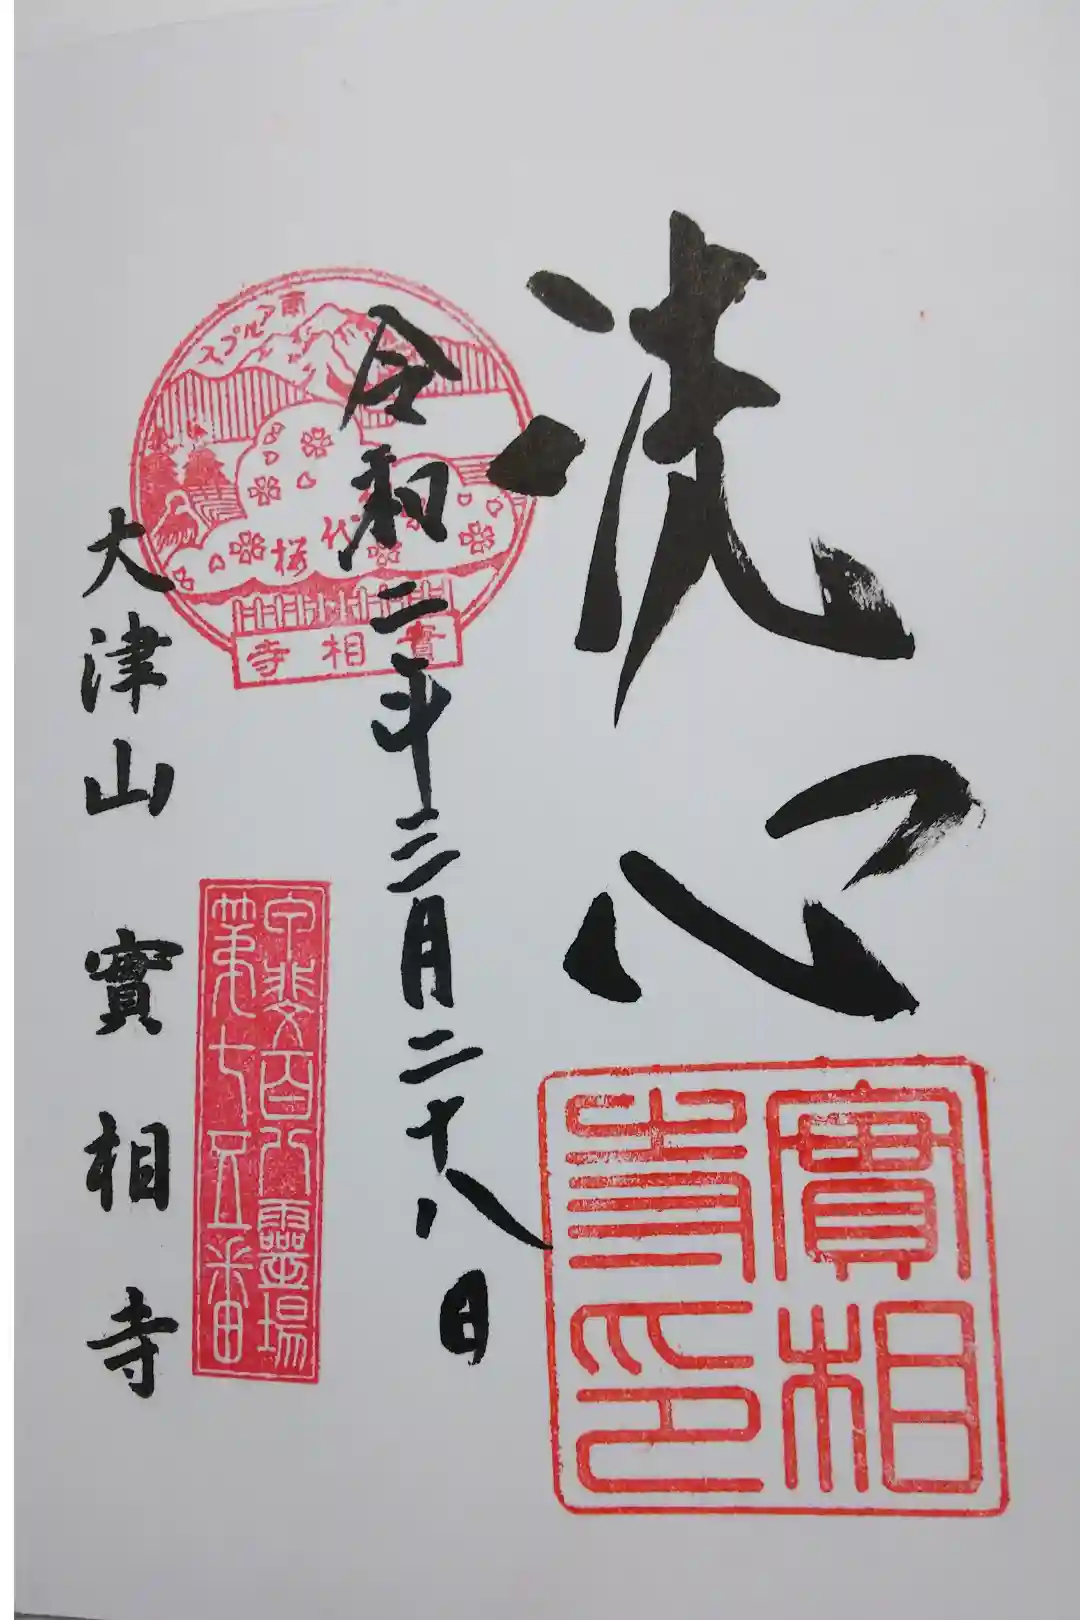 洗心
實相寺印
令和二年三月二十八日
南アルプス
代桜
實相寺
甲斐百八靈場
第七五番
大津山 實相寺